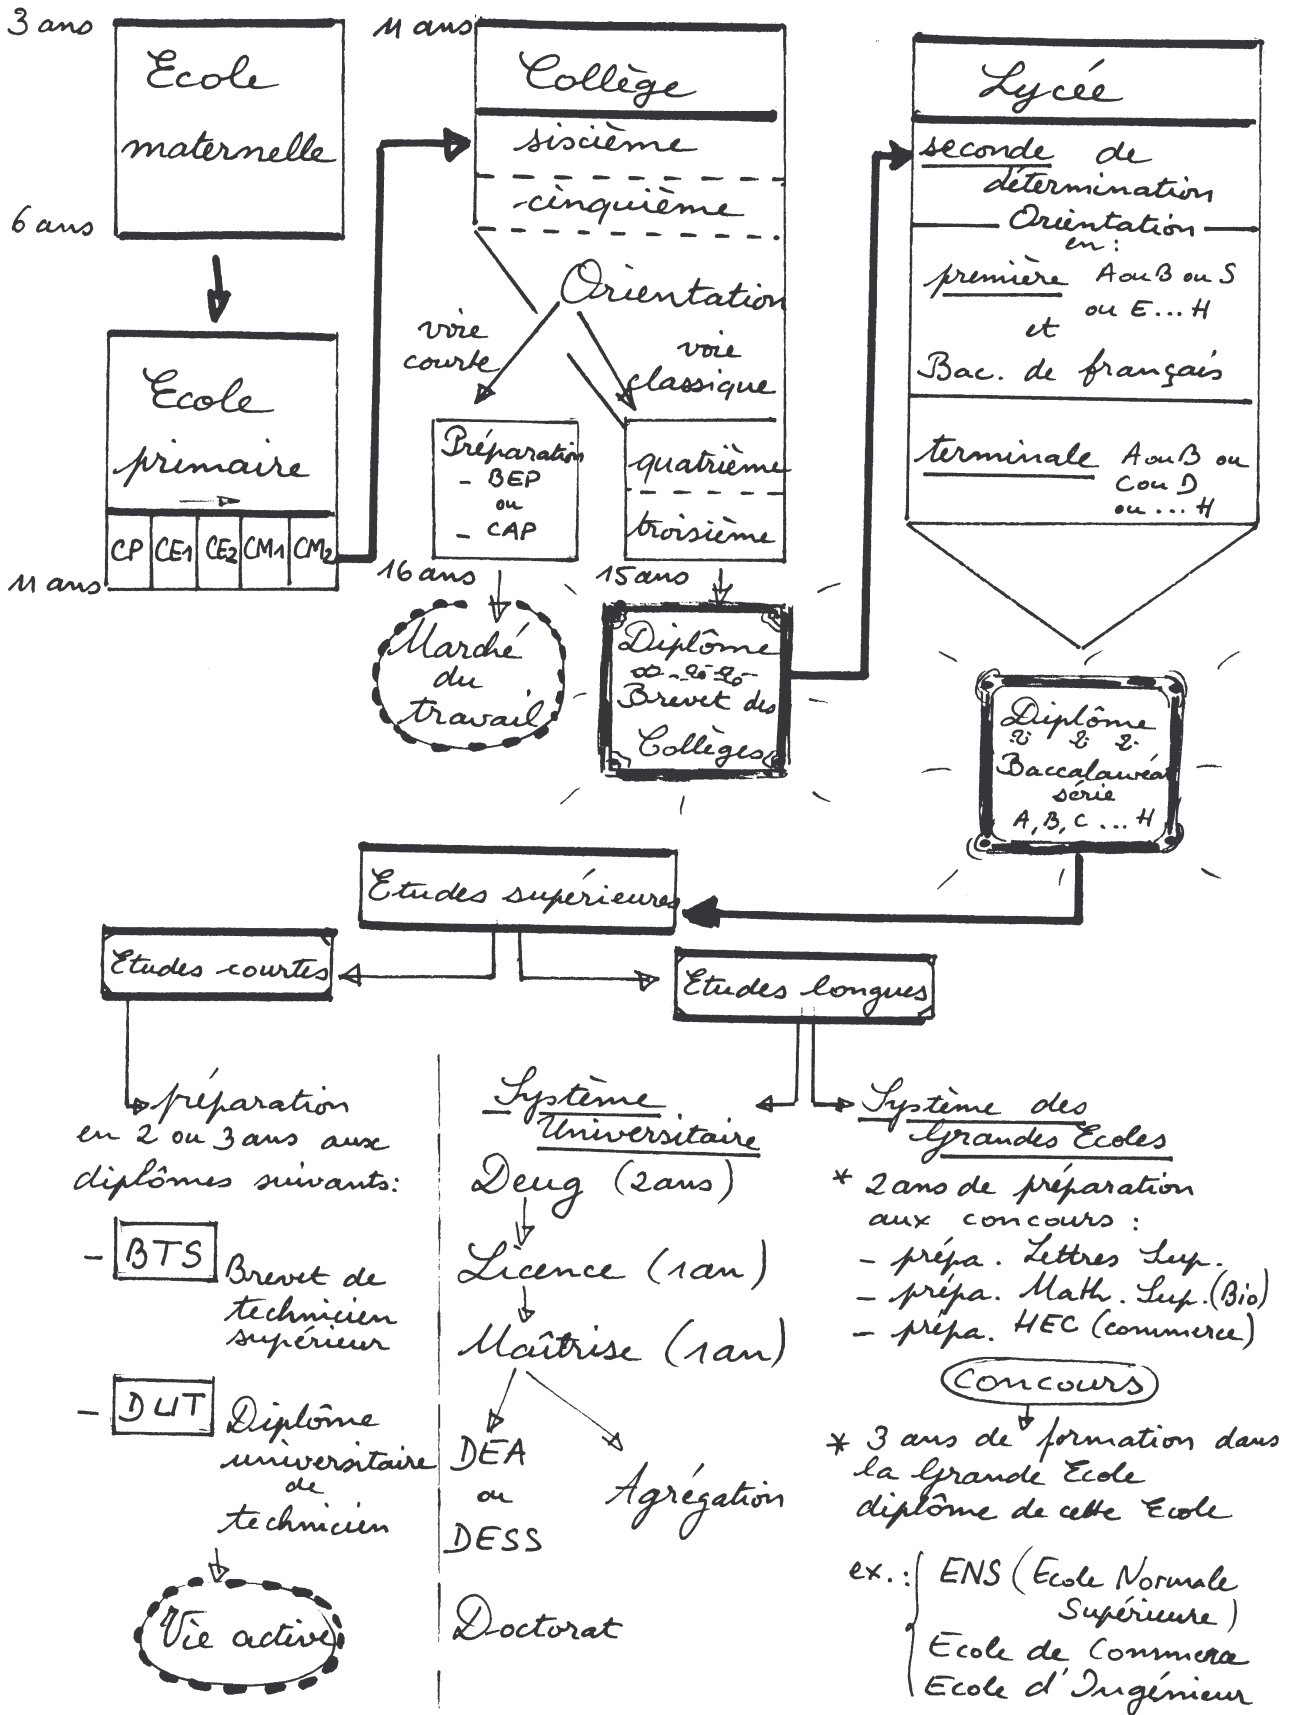 3 ans
Ecole
maternelle
6 ans
Ecole
primaire
CP CE1 CE2 CM1 CM2
11 ans
11 ans
Collège
sixième
cinquième
Orientation
voie
courte
voie
classique
Préparation
- BEP
ou
- CAP
quatrième
troisième
16 ans
15 ans
Marché
du
travail
Diplôme
Brevet des
Collèges
Lycée
seconde de
détermination
Orientation
en :
première A ou B ou S
ou E ... H
et
Bac. de français
terminale A ou B ou
C ou D
ou ... H
Diplôme
Baccalauréat
série
A, B, C ... H
Etudes supérieures
Etudes courtes
Etudes longues
préparation
en 2 ou 3 ans aux
diplômes suivants :
- BTS Brevet de
technicien
supérieur
- DUT Diplôme
universitaire
de
technicien
Vie active
Système
Universitaire
Deug (2 ans)
Licence (1 an)
Maîtrise (1 an)
DEA
ou
DESS
Agrégation
Doctorat
Système des
Grandes Ecoles
* 2 ans de préparation
aux concours :
- prépa. Lettres Sup.
- prépa. Math. Sup. (Bio)
- prépa. HEC (commerce)
Concours
* 3 ans de formation dans
la Grande Ecole
diplôme de cette Ecole
ex. : ENS (Ecole Normale
Supérieure)
Ecole de Commerce
Ecole d'Ingénieur